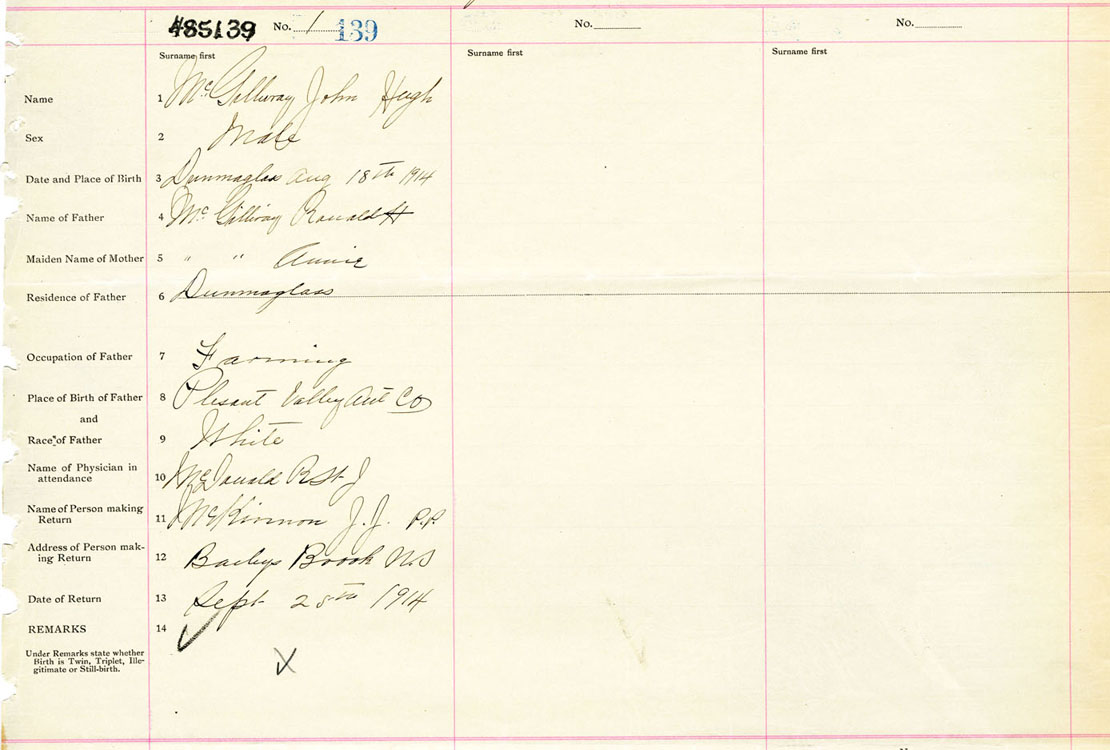 485139 No. 1 139 No. No.
Surname first Surname first Surname first
Name 1 McGillivray John Hugh
Sex 2 Male
Date and Place of Birth 3 Dunmaglass Aug 18th 1914
Name of Father 4 McGillivray Ronald H
Maiden Name of Mother 5 " " Annie
Residence of Father 6 Dunmaglass
Occupation of Father 7 Farming
Place of Birth of Father 8 Plesant Valley Ant Co
and
Race of Father 9 White
Name of Physician in
attendance 10 McDonald R St J
Name of Person making
Return 11 McKinnon J. J. P.P.
Address of Person mak-
ing Return 12 Baileys Brook N.S
Date of Return 13 Sept 25th 1914
REMARKS 14
Under Remarks state whether
Birth is Twin, Triplet, Ille-
gitimate or Still-birth.
X